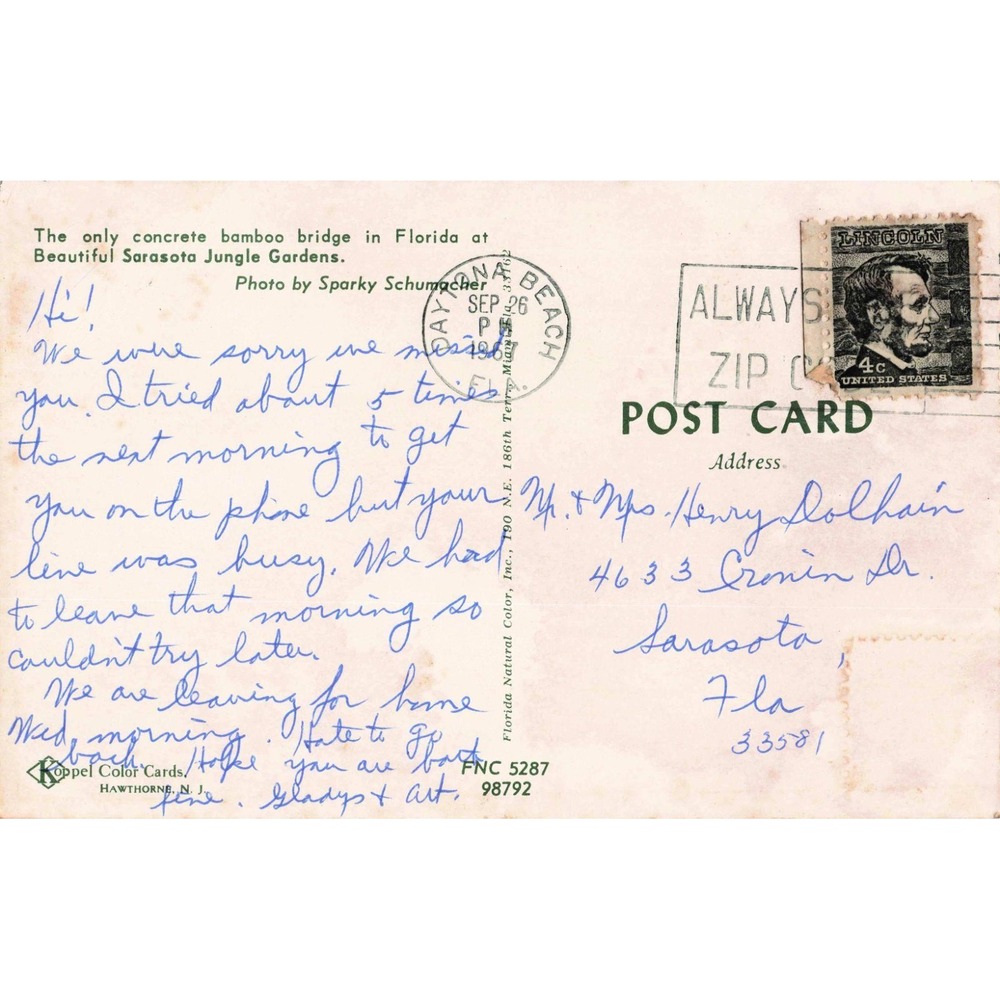 The only concrete bamboo bridge in Florida at
Beautiful Sarasota Jungle Gardens.
Photo by Sparky Schumacher
Hi!
We were sorry we missed
you. I tried about 5 times
the next morning to get
you on the phone but your
line was busy. We had
to leave that morning so
couldn't try later.
We are leaving for home
Wed. morning. Hate to go
back. Hope you are both
fine. Gladys + Art.
Koppel Color Cards,
HAWTHORNE, N. J.
FNC 5287
98792
Florida Natural Color, Inc., 190 N.E. 186th Terr., Miami, Fla. 33162
DAYTONA BEACH
SEP 26
PM
1967
FLA.
ALWAYS
ZIP
LINCOLN
4c
UNITED STATES
POST CARD
Address
Mr. & Mrs. Henry Dolhain
4633 Cronin Dr.
Sarasota,
Fla
33581